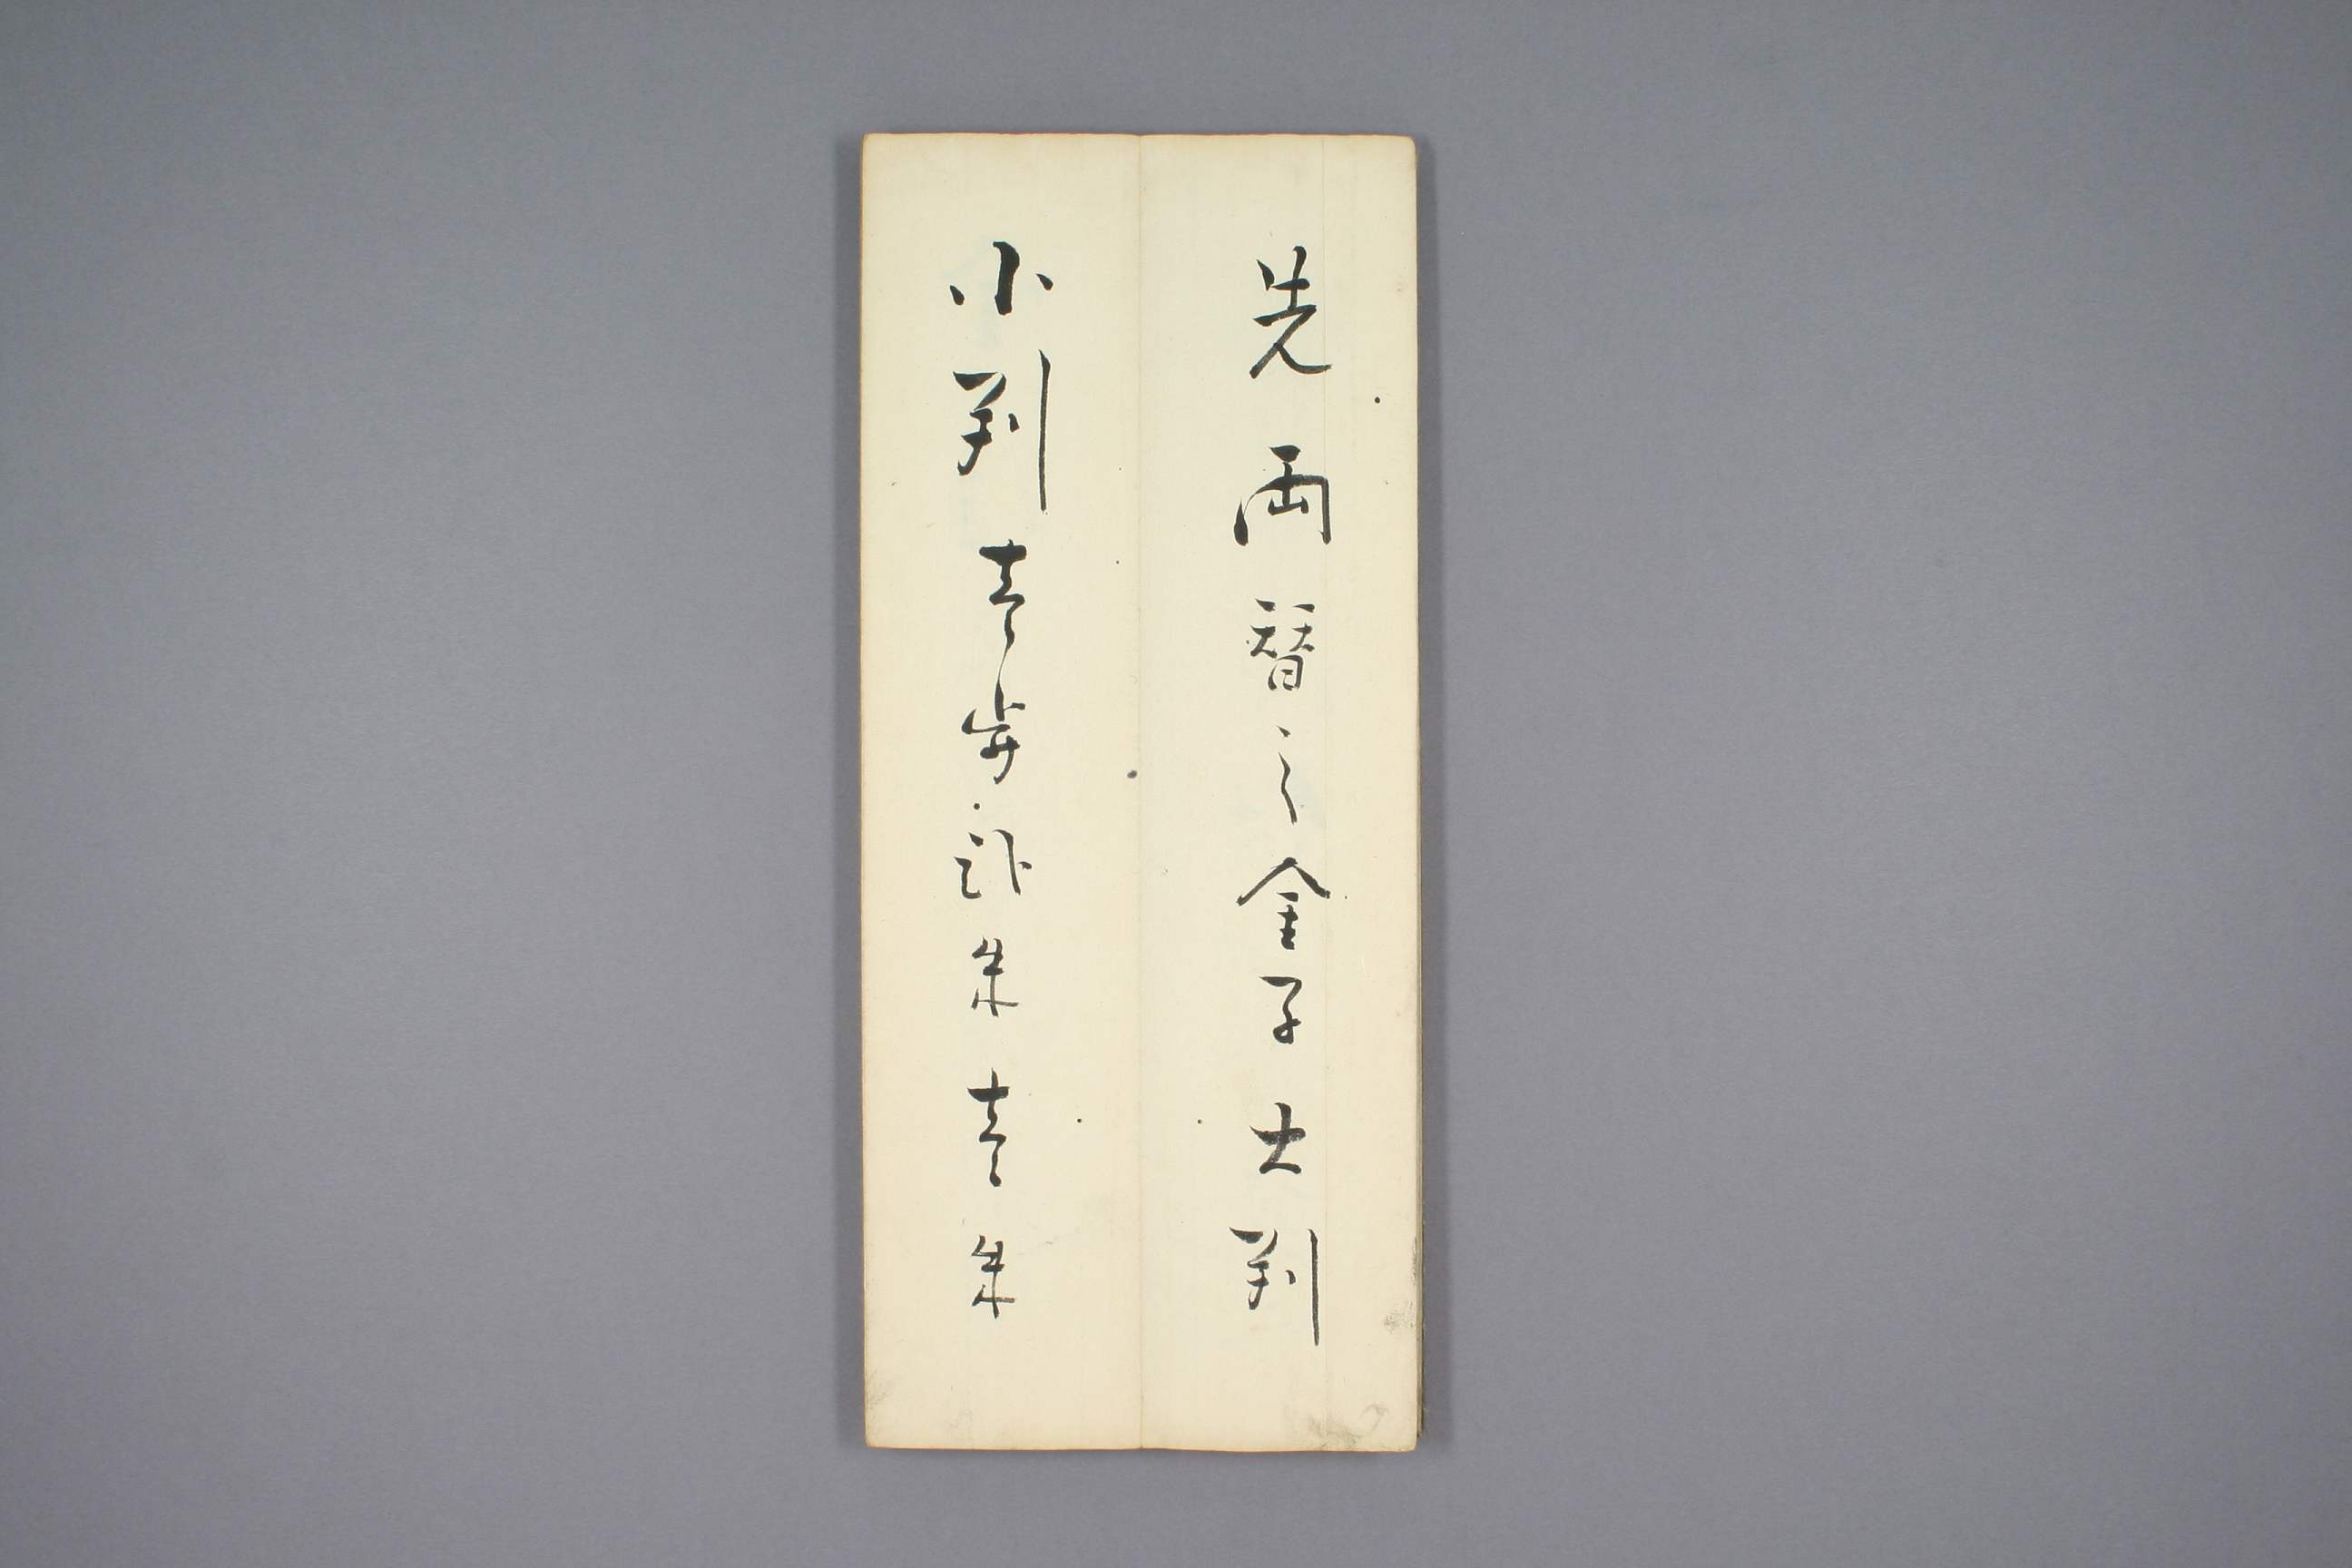 先両替之金子大判
小判壱歩弐朱壱朱